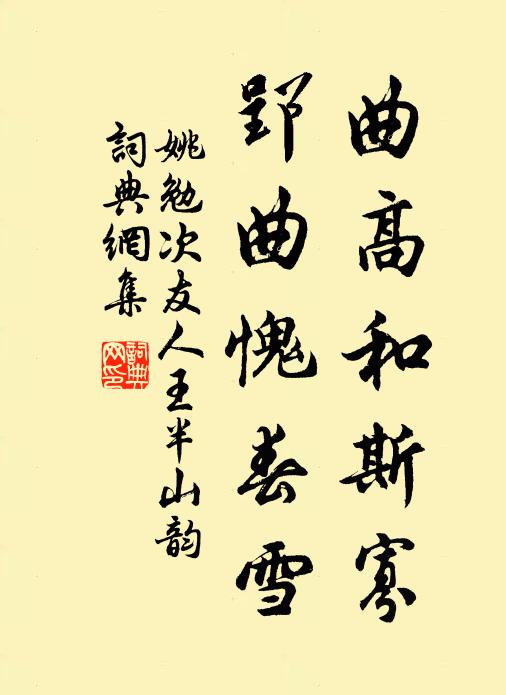 曲高和斯寡
郢曲愧春雪
姚勉次友人王半山韵
詞典網集
詞典網印